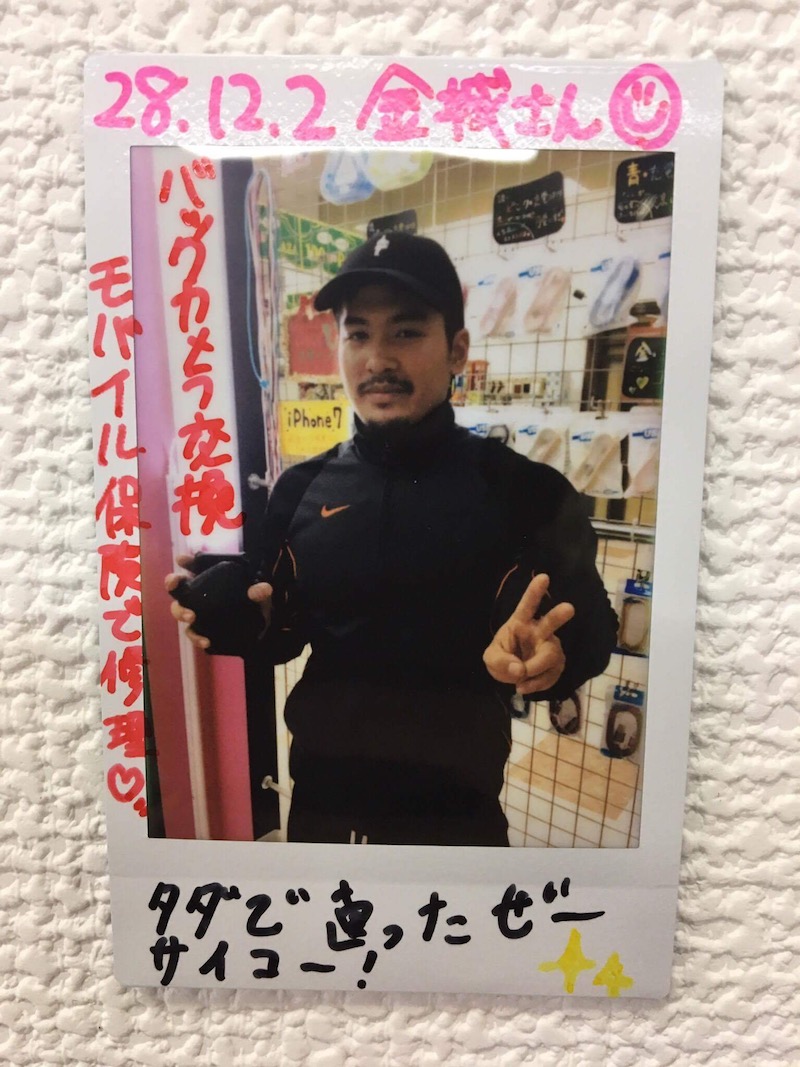 28.12.2 金城さん
バックカメラ交換
モバイル保険で修理♡
iPhone7
タダで直ったぜー
サイコー!